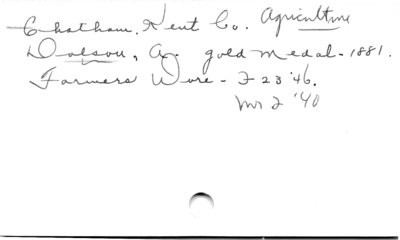 Chatham, Kent Co. Agriculture
Dolson, A. gold medal - 1881.
Farmers Wore - F 23 '46.
Mr 2 '40